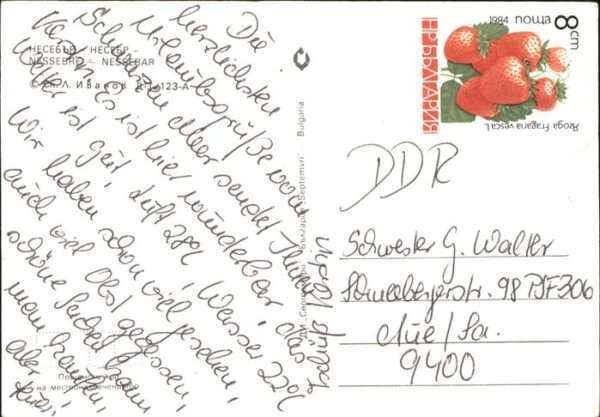 Die
herzlichsten
Urlaubsgrüße vom
Schwarzen Meer sendet Ihnen
Kerstin. Es ist hier wunderbar, das
Wetter ist gut, Luft 28°C, Wasser 22°C
Wir haben schon viel gesehen,
auch viel Obst gegessen,
schöne Sachen kann
man kaufen,
aber
НЕСЕБЪР - НЕСЕБР -
NESSEBRE - NESSEBAR
© Сп. Л. Иванов Д-1123-А
"Септември" България "Septemvri" Bulgaria
на местоназначението
1984
8 cm
НР БЪЛГАРИЯ
Ягода Fragaria vesca L.
DDR
Schwester G. Walter
Schneebergerstr. 98 PSF 306
Aue/Sa.
9400